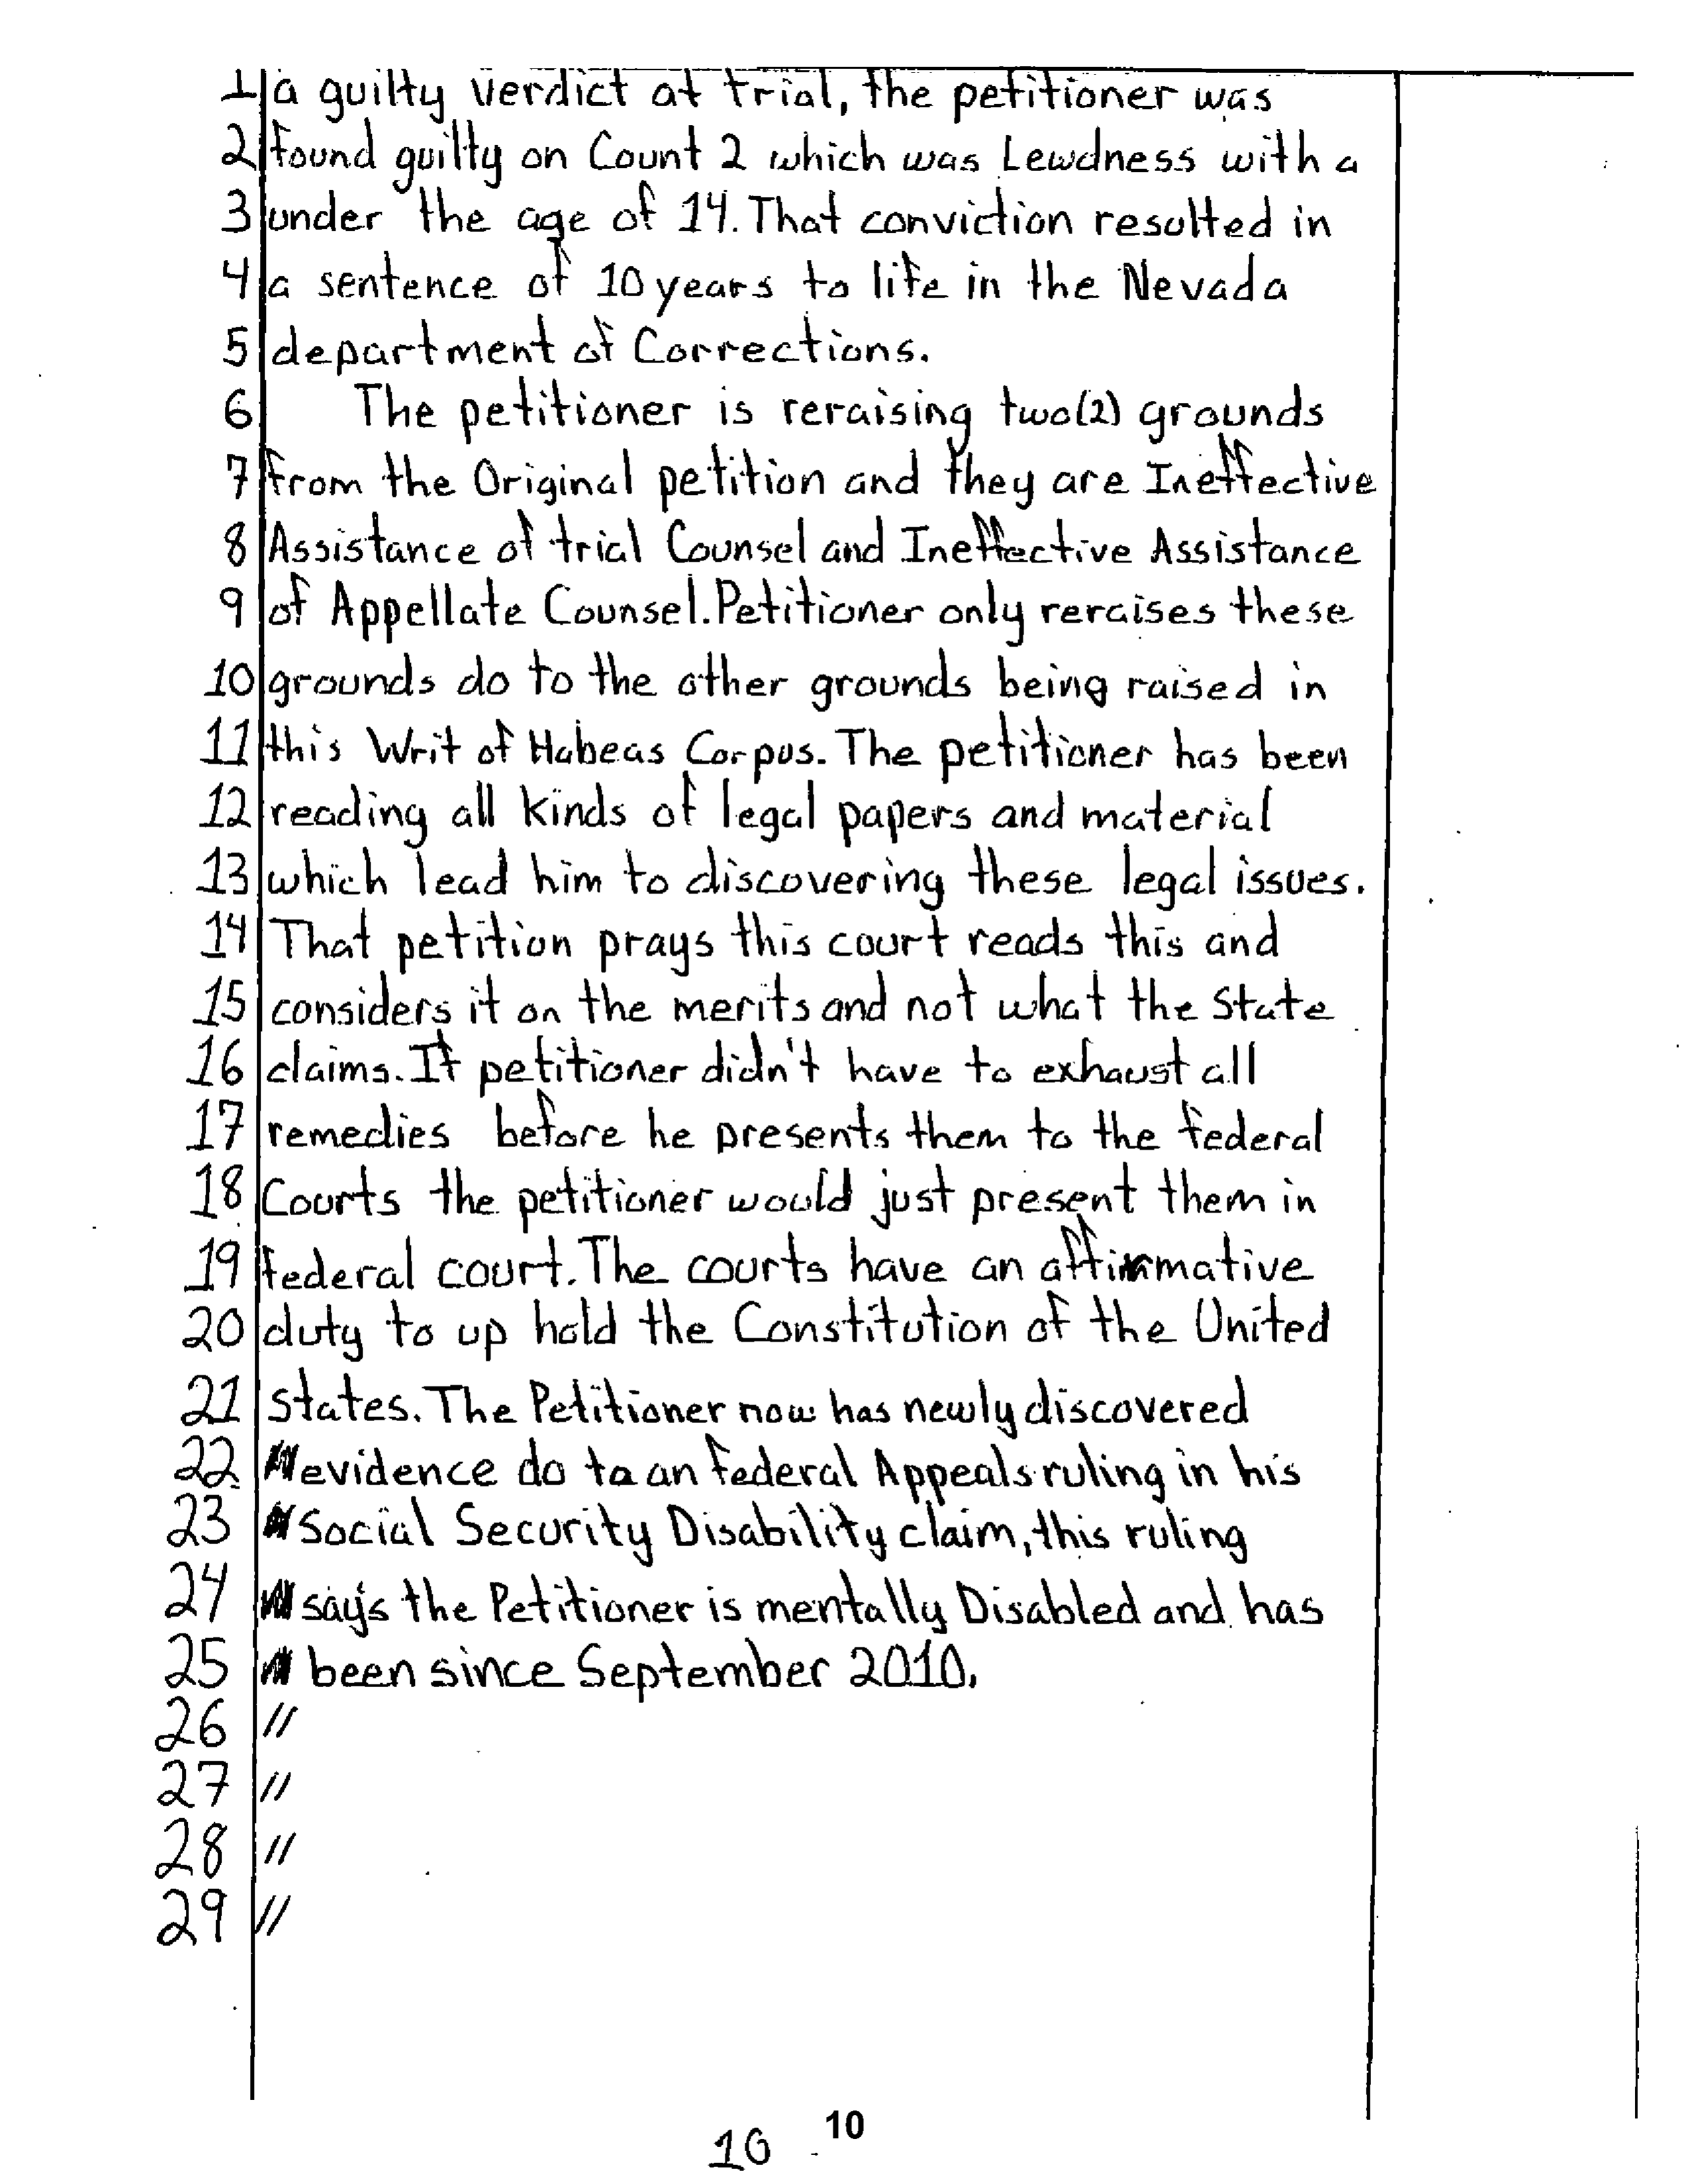 1 a guilty verdict at trial, the petitioner was
2 found guilty on Count 2 which was Lewdness with a
3 under the age of 14. That conviction resulted in
4 a sentence of 10 years to life in the Nevada
5 department of Corrections.
6 The petitioner is reraising two(2) grounds
7 from the Original petition and they are Ineffective
8 Assistance of trial Counsel and Ineffective Assistance
9 of Appellate Counsel. Petitioner only reraises these
10 grounds do to the other grounds being raised in
11 this Writ of Habeas Corpus. The petitioner has been
12 reading all kinds of legal papers and material
13 which lead him to discovering these legal issues.
14 That petition prays this court reads this and
15 considers it on the merits and not what the State
16 claims. If petitioner didn't have to exhaust all
17 remedies before he presents them to the federal
18 Courts the petitioner would just present them in
19 federal court. The courts have an affirmative
20 duty to up hold the Constitution of the United
21 States. The Petitioner now has newly discovered
22 evidence do to an federal Appeals ruling in his
23 Social Security Disability claim, this ruling
24 say's the Petitioner is mentally Disabled and has
25 been since September 2010.
26 //
27 //
28 //
29 //
10
10